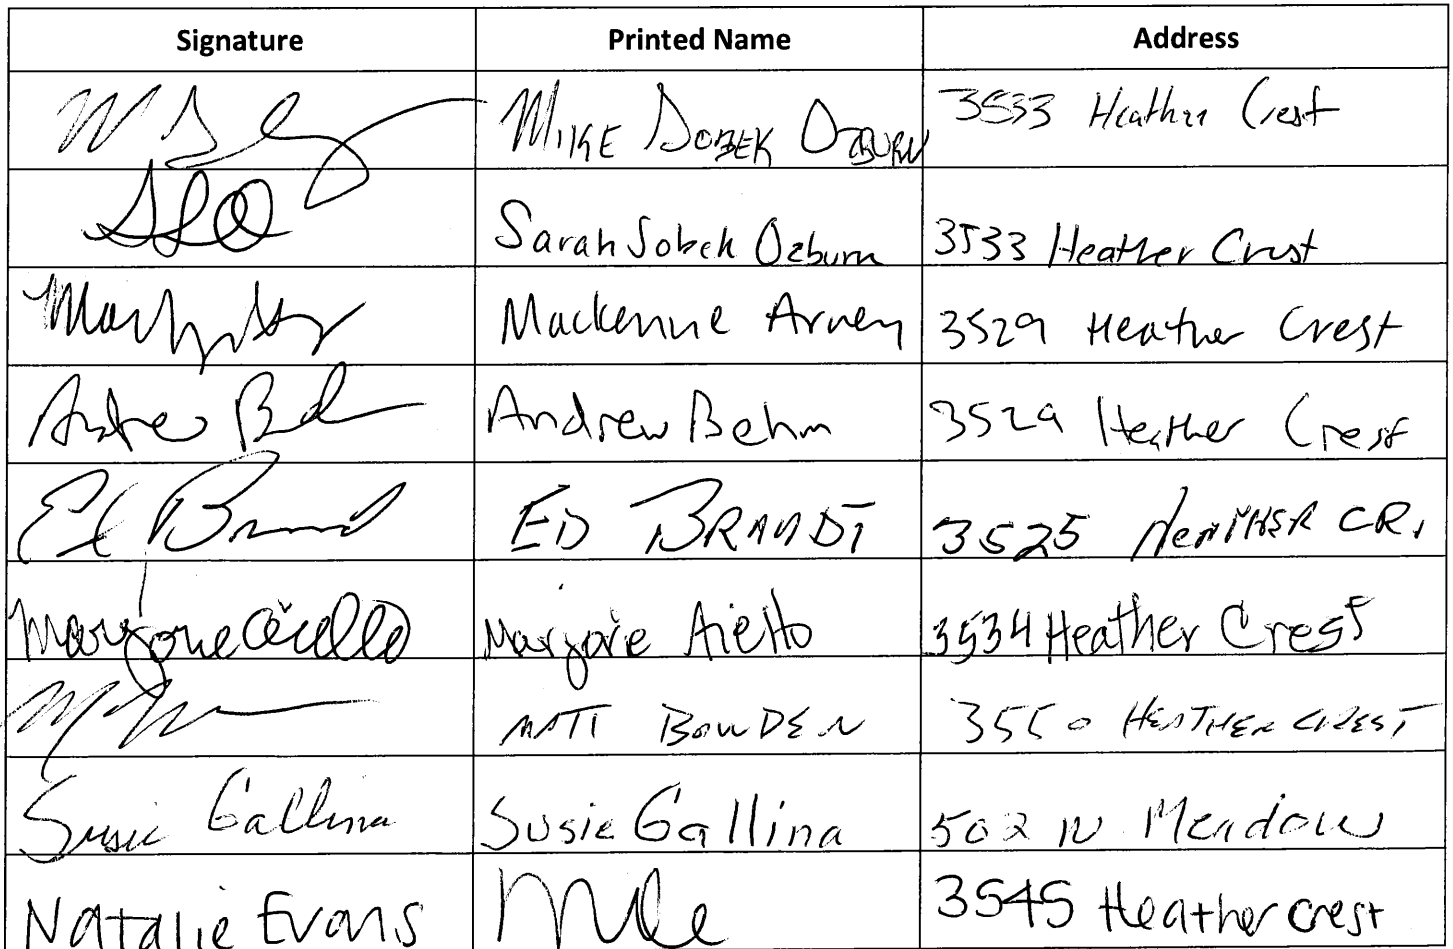 Signature Printed Name Address
MIKE SOBEK OZBURN 3533 Heather Crest
Sarah Sobek Ozburn 3533 Heather Crest
Mackenzie Arney 3529 Heather Crest
Andrew Behm Andrew Behm 3529 Heather Crest
Ed Brandt ED BRANDT 3525 HEATHER CR.
Marjorie Aiello Marjorie Aiello 3534 Heather Crest
MATT BOWDEN 3550 HEATHER CREST
Susie Gallina Susie Gallina 502 W Meadow
Natalie Evans 3545 Heather crest